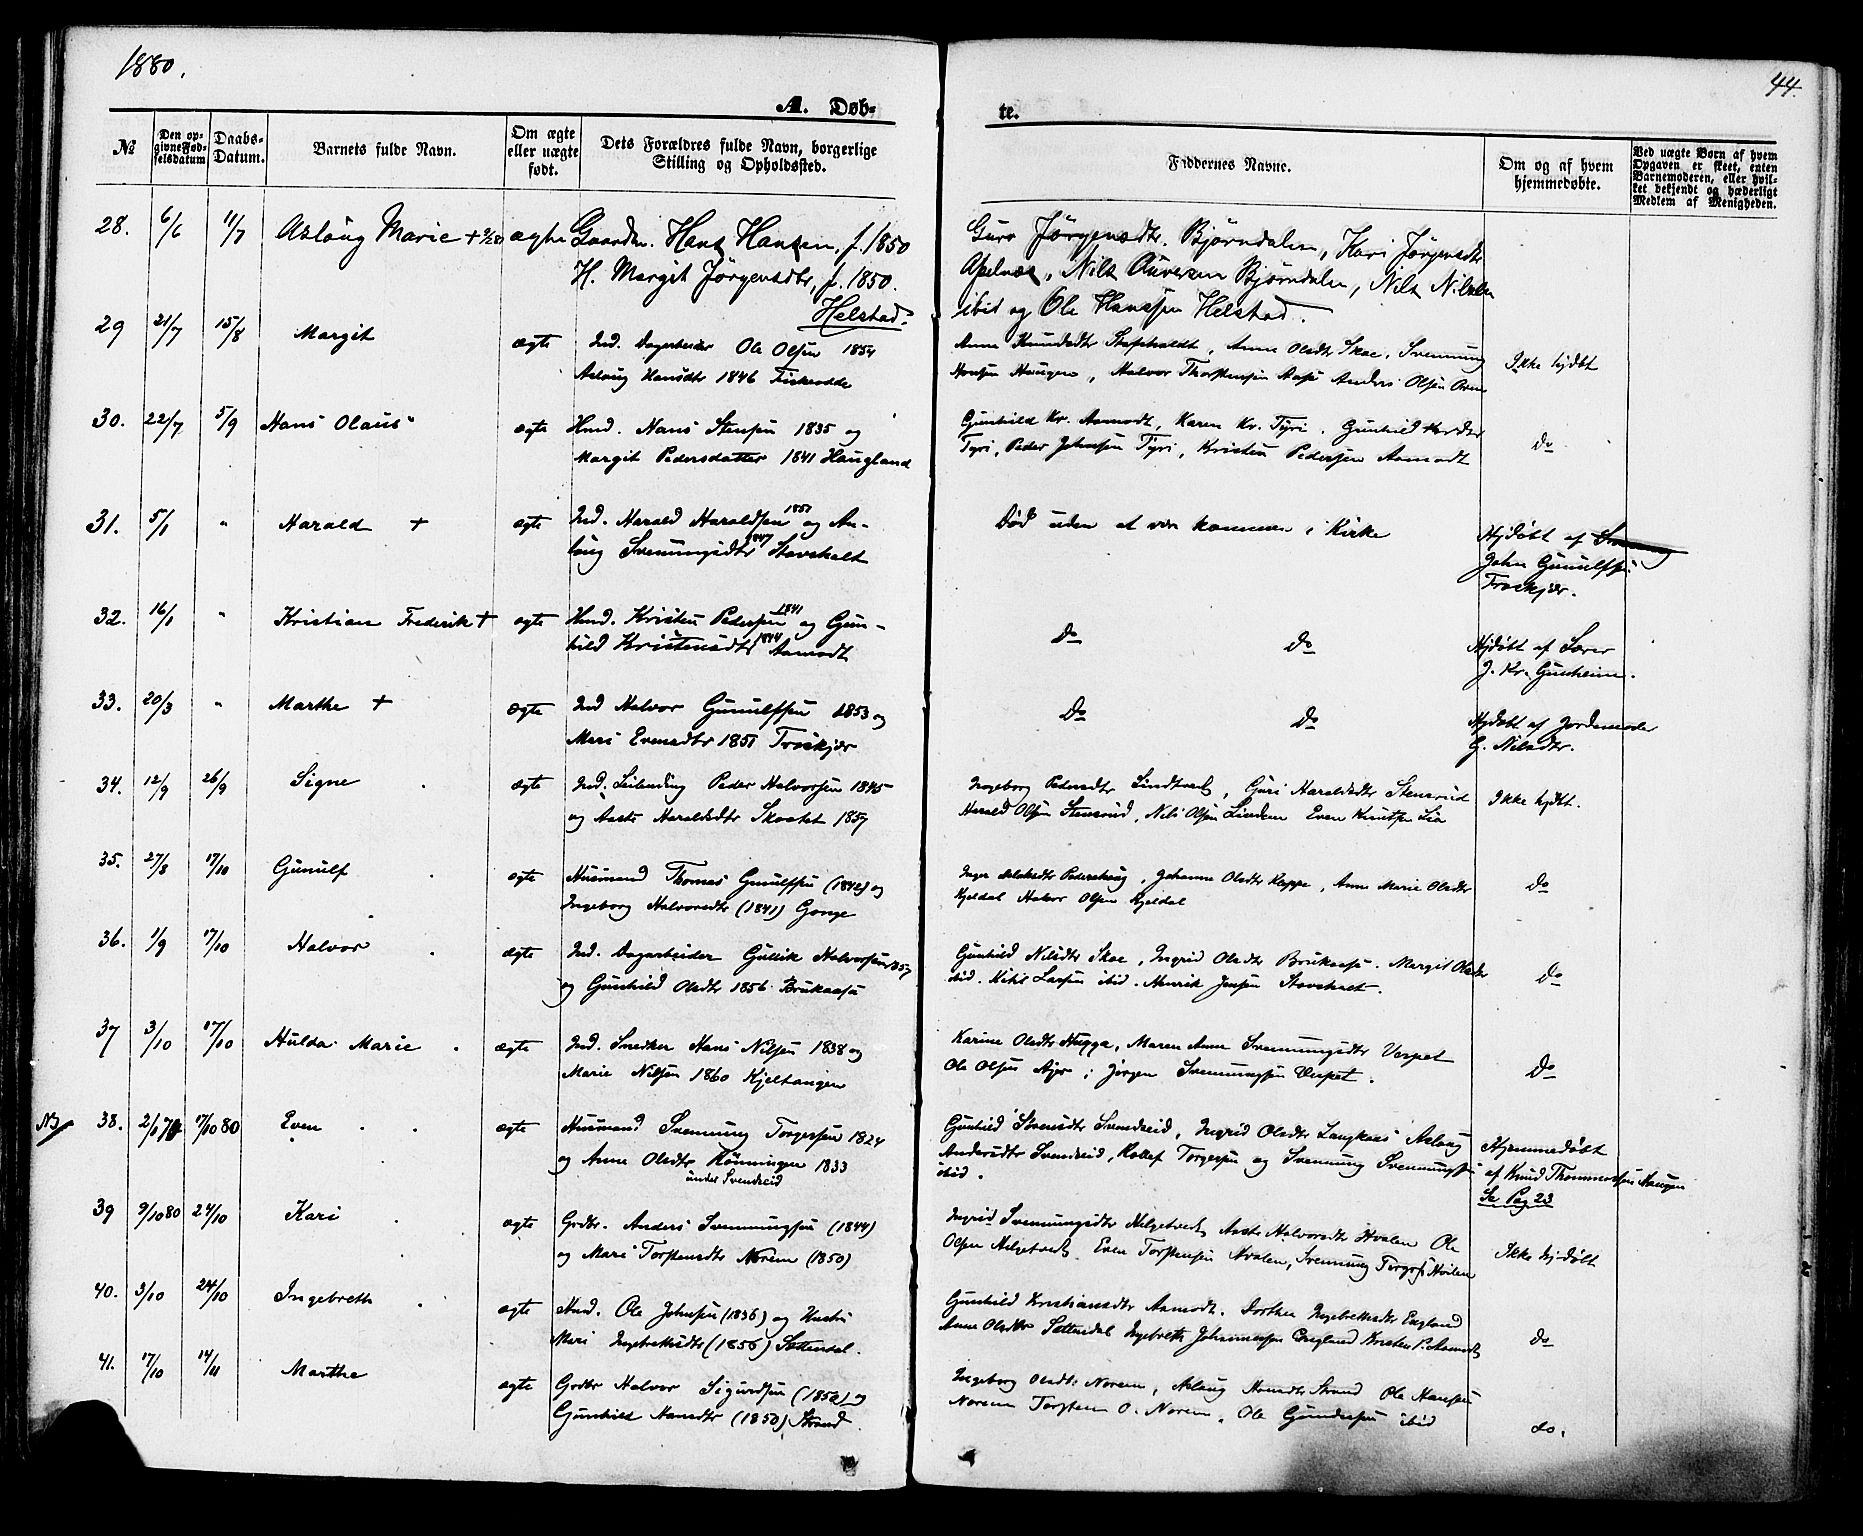 1880.
44.
A. Døb-
te.
№
Den op-
givne Fød-
selsdatum
Daabs-
Datum.
Barnets fulde Navn.
Om ægte
eller uægte
født.
Dets Forældres fulde Navn, borgerlige
Stilling og Opholdssted.
Faddernes Navne.
Om og af hvem
hjemmedøbte.
Ved uægte Børn af hvem
Opgaven er skeet, enten
Barnemoderen, eller hvil-
ket bekjendt og hæderligt
Medlem af Menigheden.
28. 6/6 11/7 Aslöug Marie + ægte Gaardm. Hans Hansen, f. 1850
H. Margit Jörgensdtr, f. 1850.
Helstad.
Guro Jörgensdtr. Björndalen, Kari Jörgensdtr
Apelnæs, Nils Auversen Björndalen, Nils Nilsen
ibid og Ole Hanssen Helstad.
29 21/7 15/8 Margit ægte Ind. Dagarbeider Ole Olsen 1854
Aslaug Hansdtr 1846 Fiskeodde
Anne Knudsdtr Stafsholdt, Anne Olsdtr Skoe, Svennung
Hansen Haugen, Halvor Thorstensen Aase Anders Olsen
Ikke hjdøbt
30. 22/7 5/9 Hans Olaus ægte Hmd. Hans Stensen 1835 og
Margit Pedersdatter 1841 Haugland
Gunhild Kr. Aamodt, Karen Kr. Tyri. Gunhild
Tyri, Peder Johnsen Tyri, Kristen Pedersen Aamodt
Do
31. 5/1 " Harald + ægte Ind. Harald Haraldsen 1851 og As-
laug Svennungsdtr 1847 Stavsholt
Død uden at være kommen i Kirke
Hjdøbt af Svennung
John Gunulfsen
Froskjær.
32. 16/1 " Kristian Frederik + ægte Hmd. Kristen Pedersen 1841 og Gun-
hild Kristensdtr 1844 Aamodt
Do Do
Hjdøbt af Lærer
J. Kr. Gunheim.
33. 20/3 " Marthe + ægte Ind Halvor Gunulfsen 1853 og
Mari Evensdtr 1851 Froskjær
Do Do
Hjdøbt af Jordemoder
G. Nilsdtr.
34. 12/9 26/9 Signe ægte Ind. Leilending Peder Halvorsen 1845
og Aaste Haraldsdtr Skoatet 1857
Ingeborg Pedersdtr Lindtvedt, Guri Haraldsdtr Stensrud
Harald Olsen Stensrud, Nils Olsen Lindem Even Knutsen Lia
Ikke hjdøbt.
35. 27/8 17/10 Gunulf ægte Husmand Thomas Gunulfsen (1842) og
Ingeborg Halvorsdtr (1841) Gonge
Inger Pedershaug, Johanne Olsdtr Kappe, Anne Marie Olsdtr
Kjeldal Halvor Olsen Kjeldal
Do
36. 1/9 17/10 Halvor ægte Ind. Dagarbeider Gullik Halvorsen 1857
og Gunhild Olsdtr 1856 Brukaasa
Gunhild Nilsdtr Skoe, Ingrid Olsdtr Brukaasa. Margit Olsdtr
ibid. Kitil Larsen ibid. Henrik Jensen Stavsholt.
Do
37 3/10 17/10 Hulda Marie ægte Ind. Snedker Hans Nilsen 1838 og
Marie Nilsen 1860 Kjeltangen
Karine Olsdtr Hugga, Maren Anne Svennungsdtr Verpet
Ole Olsen Ajer; Jörgen Svennungsen Verpet.
Do
NB 38. 2/1 79 17/10 80 Even ægte Husmand Svennung Torgersen 1824
og Anne Olsdtr Rönningen 1833
under Svendseid
Gunhild Svensdtr Svendseid, Ingrid Olsdtr Langkaas Aslaug
Andersdtr Svendseid, Rollef Torgersen og Svennung Svennungsen
ibid.
Hjemmedøbt
af Knud Thommassen Haugen
Se Pag 23
39 9/10 80 24/10 Kari ægte Grdbr. Anders Svennungsen (1844)
og Mari Torstensdtr Norem (1850)
Ingrid Svennungsdtr Helgetvedt Aaste Halvorsdtr Hvalen Ole
Olsen Helgetvedt. Even Torstensen Hvalen, Svennung Torgers. Hvilen
Ikke hjdøbt
40. 3/10 24/10 Ingebreth ægte Hmd. Ole Johnsen (1836) og Hustru
Mari Ingebrethsdtr (1856) Settendal.
Gunhild Kristiansdtr Aamodt. Dorthea Ingebretsdtr Engeland
Anne Olsdtr Settendal Ingebreth Johannessen England Kristen P. Aamodt
Do
41. 17/10 14/11 Marthe ægte Grdbr Halvor Sigurdsen (1852) og
Gunhild Hansdtr (1850) Strand.
Ingeborg Olsdtr Norem, Aslaug Hansdtr Strand Ole Hansen
Norem Torsten O. Norem, Ole Gundersen ibid
do.